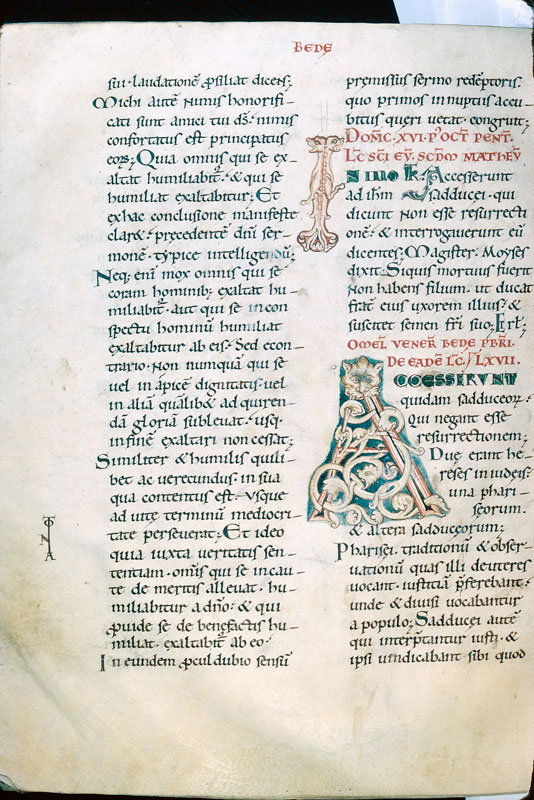 BEDE
sui · laudationẽ ꝓsiliat dicens;
Michi autẽ nimis honorifi-
cati sunt amici tui dš · nimis
confortatus est principatus
eoꝝ; Quia omnis qui se ex-
altat humiliabit᷑ · & qui se
humiliat exaltabitur; Et
ex hac conclusione manifeste
claret · p̄cedentẽ dñi ser-
monẽ · typice intelligendũ;
Neq; eni mox omnis qui se
coram hominib; exaltat hu-
miliabit᷑ · aut qui se in con
spectu hominũ humiliat
exaltabitur ab eis · Sed econ-
trario · Non numquã qui se
uel in apice dignitatis · uel
in aliã qualib& adquiren-
dã gloriã subleuat · usq;
in finẽ exaltari non cessat;
Similiter & humilis quili-
bet ac uerecundus · in sua
qua contentus est · Vsque
ad uitę terminũ mediocri-
tate perseuerat; Et ideo
quia iuxta ueritatis sen-
tentiam · om̃s qui se incau-
te de meritis alleuat · hu-
miliabitur a dño · & qui
ꝓuide se de benefactis hu-
miliat · exaltabit᷑ ab eo ·
In eundem ꝓcul dubio sensũ
premissus sermo redẽptoris ·
quo primos in nuptiis accu-
bitus queri uetat · congruit;
DOMC · XVI · P' OCT PENT ·
LC̄ SCI EV̄ · SCDM MATHEV̄
IN ILLO T̄R · Accesserunt
ad ihm Sadducei · qui
dicunt non esse resurrecti
onẽ · & interrogauerunt eũ
dicentes; Magister · Moyses
dixit · Si quis mortuus fuerit
Non habens filium · ut ducat
frat̃ eius uxorem illius · &
suscitet semen fr̃i suo; Et rt̃;
OMEL VENER BEDE PBRI ·
DE EADE LC̄ · LXVII ·
ACCESSERUNT
quidam sadduceoꝝ ·
Qui negant esse
resurrectionem;
Duę erant he-
reses in iudeis ·
una phari-
seorum ·
& altera sadduceorum;
Pharisei · traditionũ & obser-
uationũ quas illi deuteres
uocant · iustitiã p̄ferebant ·
unde & diuisi uocabantur
a populo; Sadducei autẽ
qui interp̄tantur iusti · &
ipsi uindicabant sibi quod